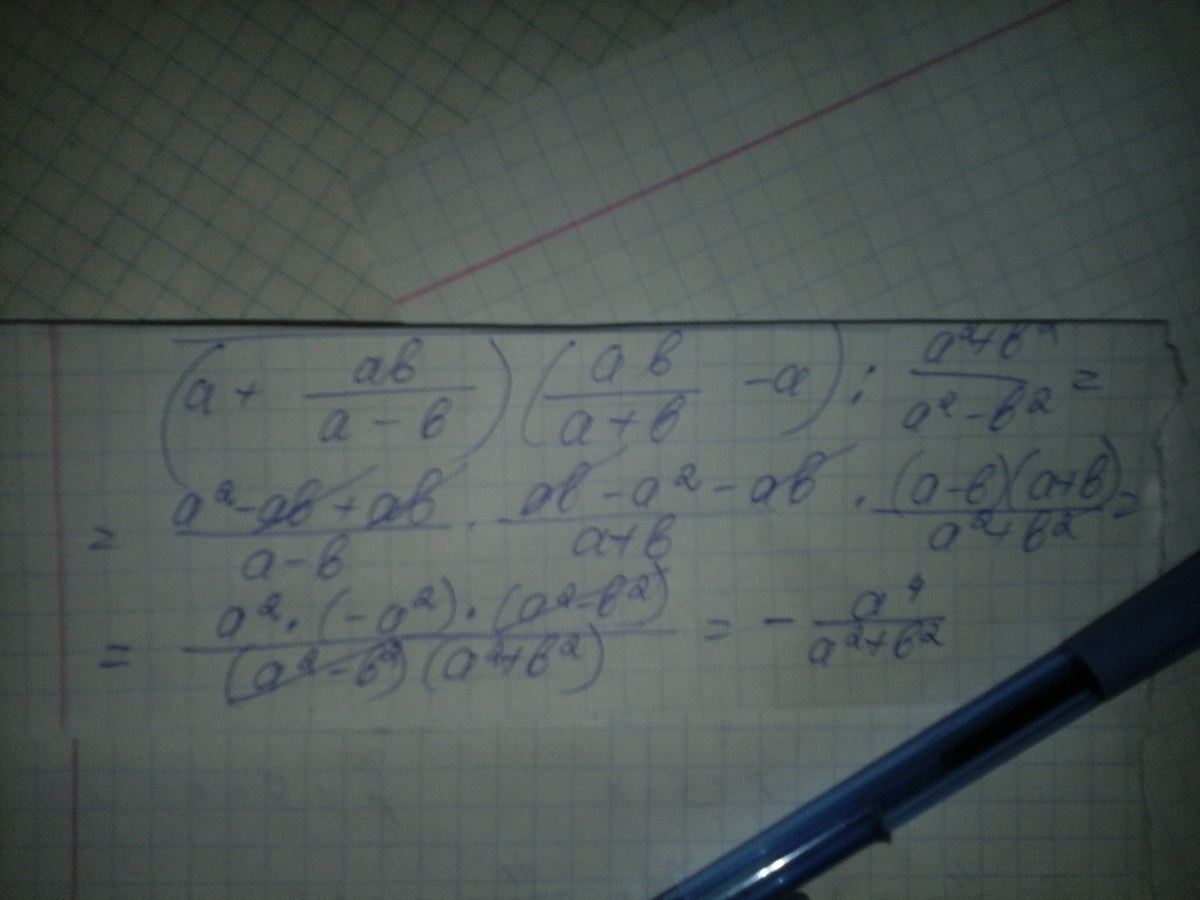 (a + ab/(a - b)) (ab/(a + b) - a) : (a² + b²)/(a² - b²) =
= (a² - ab + ab)/(a - b) · (ab - a² - ab)/(a + b) · (a - b)(a + b)/(a² + b²) =
= (a² · (-a²) · (a² - b²))/((a² - b²)(a² + b²)) = - a⁴/(a² + b²)